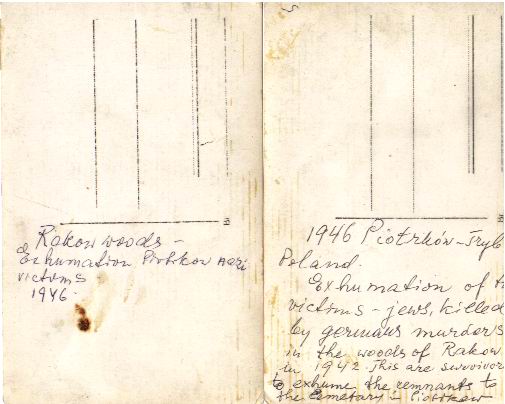 Rakow woods -
Exhumation Piotrkow Nazi
victims
1946.
1946 Piotrków - Tryb
Poland.
Exhumation of th
victims - jews, killed
by germans murders
in the woods of Rakow
in 1942. This are survivor
to exhume the remnants to
the cemetary - Piotrkow